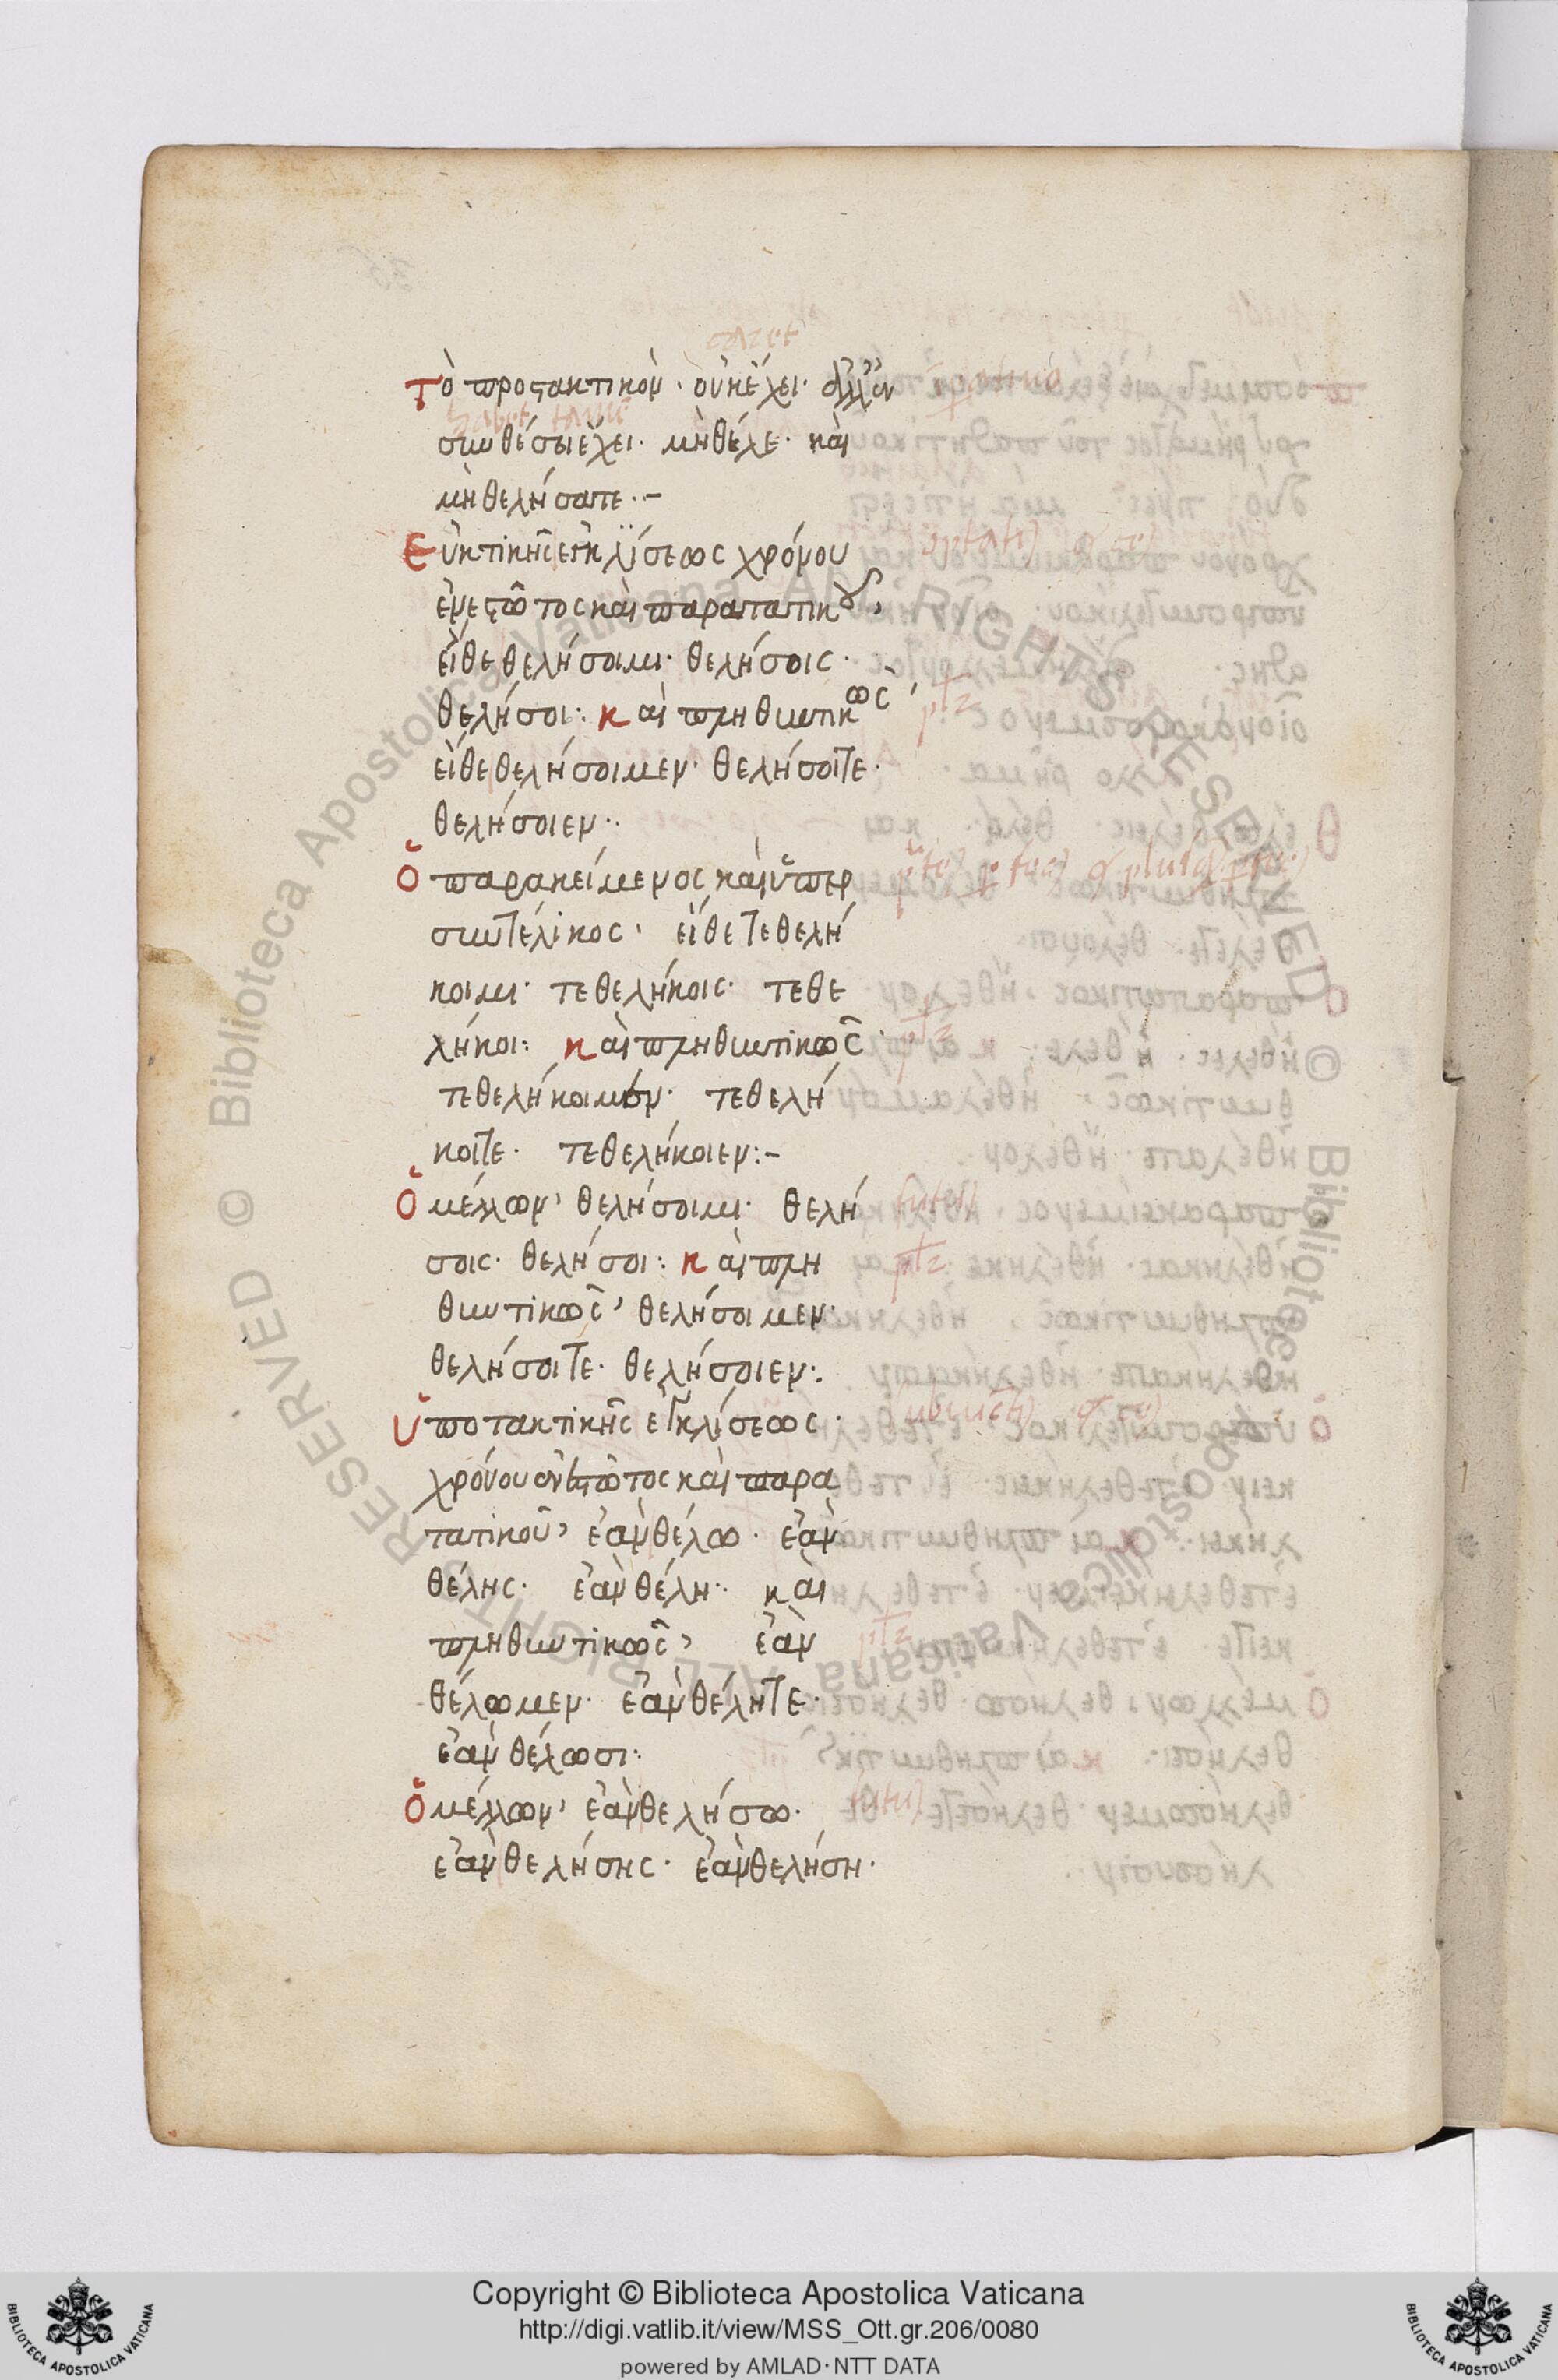 caret
Τὸ προστακτικὸν · ὀυκἔχει · ἀλλ' ἐν imperatiuo
habet tamen
συνθέσει ἔχει · μὴθέλε · καὶ
μὴ θελήσατε · –
Εὐκτικῆς ἐγκλίσεως χρόνου
ἐνεστῶτος καὶ παρατατικοῦ,
εἴθε θελήσοιμι · θελήσοις ·
θελήσοι : καὶ πληθυντικῶς,
εἴθε θελήσοιμεν · θελήσοιτε ·
θελήσοιεν ··
Ὁ παρακείμενος καὶ ὑπερ
συντέλικος · εἴθε τεθελή
κοιμι · τεθελήκοις · τεθε
λήκοι : καὶ πληθυντικῶς ·
τεθελήκοιμεν · τεθελή
κοιτε · τεθελήκοιεν :–
Ὁ μέλλων, θελήσοιμι · θελή
σοις · θελήσοι : καὶ πλη
θυντικῶς, θελήσοιμεν ·
θελήσοιτε · θελήσοιεν :.
Ὑποτακτικῆς ἐγκλίσεως ·
χρόνου ἐνεστῶτος καὶ παρα
τατικοῦ, ἐὰν θέλω · ἐὰν
θέλης · ἐὰν θέλη ·· καὶ
πληθυντικῶς, ἐὰν
θέλωμεν · ἐὰν θέλητε ·
ἐὰν θέλωσι :
Ὁ μέλλων, ἐὰν θελήσω ·
ἐὰν θελήσης · ἐὰν θελήση ·
© Biblioteca Apostolica Vaticana ALL RIGHTS RESERVED
© Biblioteca Apostolica Vaticana ALL RIGHTS RESERVED
Copyright © Biblioteca Apostolica Vaticana
http://digi.vatlib.it/view/MSS_Ott.gr.206/0080
powered by AMLAD·NTT DATA
BIBLIOTECA APOSTOLICA VATICANA
BIBLIOTECA APOSTOLICA VATICANA